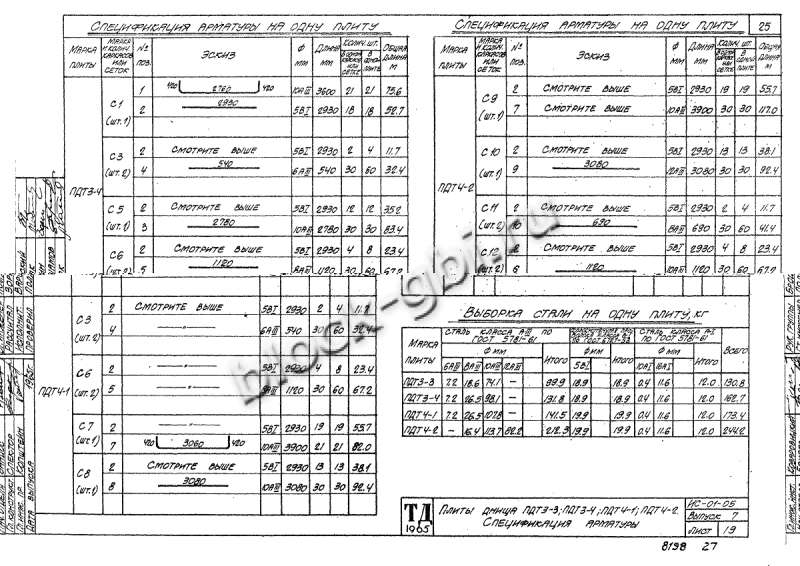 Спецификация арматуры на одну плиту
Марка плиты | Марка и колич. каркасов или сеток | № поз. | Эскиз | Ф мм | Длина мм | Колич. шт. в одном каркасе или сетке | в одной плите | Общая длина м
ПДТ3-4
С1 (шт.1) | 1 | 420 2760 420 | 10АIII | 3600 | 21 | 21 | 75.6
2 | 2930 | 5ВI | 2930 | 18 | 18 | 52.7
С3 (шт.2) | 2 | Смотрите выше | 5ВI | 2930 | 2 | 4 | 11.7
4 | 540 | 6АIII | 540 | 30 | 60 | 32.4
С5 (шт.1) | 2 | Смотрите выше | 5ВI | 2930 | 12 | 12 | 35.2
3 | 2780 | 10АIII | 2780 | 30 | 30 | 83.4
С6 (шт.2) | 2 | Смотрите выше | 5ВI | 2930 | 4 | 8 | 23.4
5 | 1120 | 8АIII | 1120 | 30 | 60 | 67.2
ПДТ4-1
С3 (шт.2) | 2 | Смотрите выше | 5ВI | 2930 | 2 | 4 | 11.7
4 | —"— | 6АIII | 540 | 30 | 60 | 32.4
С6 (шт.2) | 2 | —"— | 5ВI | 2930 | 4 | 8 | 23.4
5 | —"— | 8АIII | 1120 | 30 | 60 | 67.2
С7 (шт.1) | 2 | —"— | 5ВI | 2930 | 19 | 19 | 55.7
7 | 420 3060 420 | 10АIII | 3900 | 21 | 21 | 82.0
С8 (шт.1) | 2 | Смотрите выше | 5ВI | 2930 | 13 | 13 | 38.1
8 | 3080 | 10АIII | 3080 | 30 | 30 | 92.4
Спецификация арматуры на одну плиту 25
Марка плиты | Марка и колич. каркасов или сеток | № поз. | Эскиз | Ф мм | Длина мм | Колич. шт. в одном каркасе или сетке | в одной плите | Общая длина м
ПДТ4-2
С9 (шт.1) | 2 | Смотрите выше | 5ВI | 2930 | 19 | 19 | 55.7
7 | Смотрите выше | 10АIII | 3900 | 30 | 30 | 117.0
С10 (шт.1) | 2 | Смотрите выше | 5ВI | 2930 | 13 | 13 | 38.1
9 | 3080 | 12АIII | 3080 | 30 | 30 | 92.4
С11 (шт.2) | 2 | Смотрите выше | 5ВI | 2930 | 2 | 4 | 11.7
10 | 690 | 8АIII | 690 | 30 | 60 | 41.4
С12 (шт.2) | 2 | Смотрите выше | 5ВI | 2930 | 4 | 8 | 23.4
6 | 1120 | 10АIII | 1120 | 30 | 60 | 67.2
Выборка стали на одну плиту, кг
Марка плиты | Сталь класса А-III по ГОСТ 5781-61 | Сталь класса А-I по ГОСТ 5781-61 | Всего
Ф мм | Итого | Ф мм | Итого | Ф мм | Итого
6АIII | 8АIII | 10АIII | 12АIII | 5ВI | 10АI | 16АI
ПДТ3-3 | 7.2 | 18.6 | 74.1 | — | 99.9 | 18.9 | 18.9 | 0.4 | 11.6 | 12.0 | 130.8
ПДТ3-4 | 7.2 | 26.5 | 98.1 | — | 131.8 | 18.9 | 18.9 | 0.4 | 11.6 | 12.0 | 162.7
ПДТ4-1 | 7.2 | 26.5 | 107.8 | — | 141.5 | 19.9 | 19.9 | 0.4 | 11.6 | 12.0 | 173.4
ПДТ4-2 | — | 16.4 | 113.7 | 82.2 | 212.3 | 19.9 | 19.9 | 0.4 | 11.6 | 12.0 | 244.2
ТД 1965
Плиты днища ПДТ3-3; ПДТ3-4; ПДТ4-1; ПДТ4-2.
Спецификация арматуры
ИС-01-05
Выпуск 7
Лист 19
8198 27
block-gbi.ru
Дата выпуска 1965г.